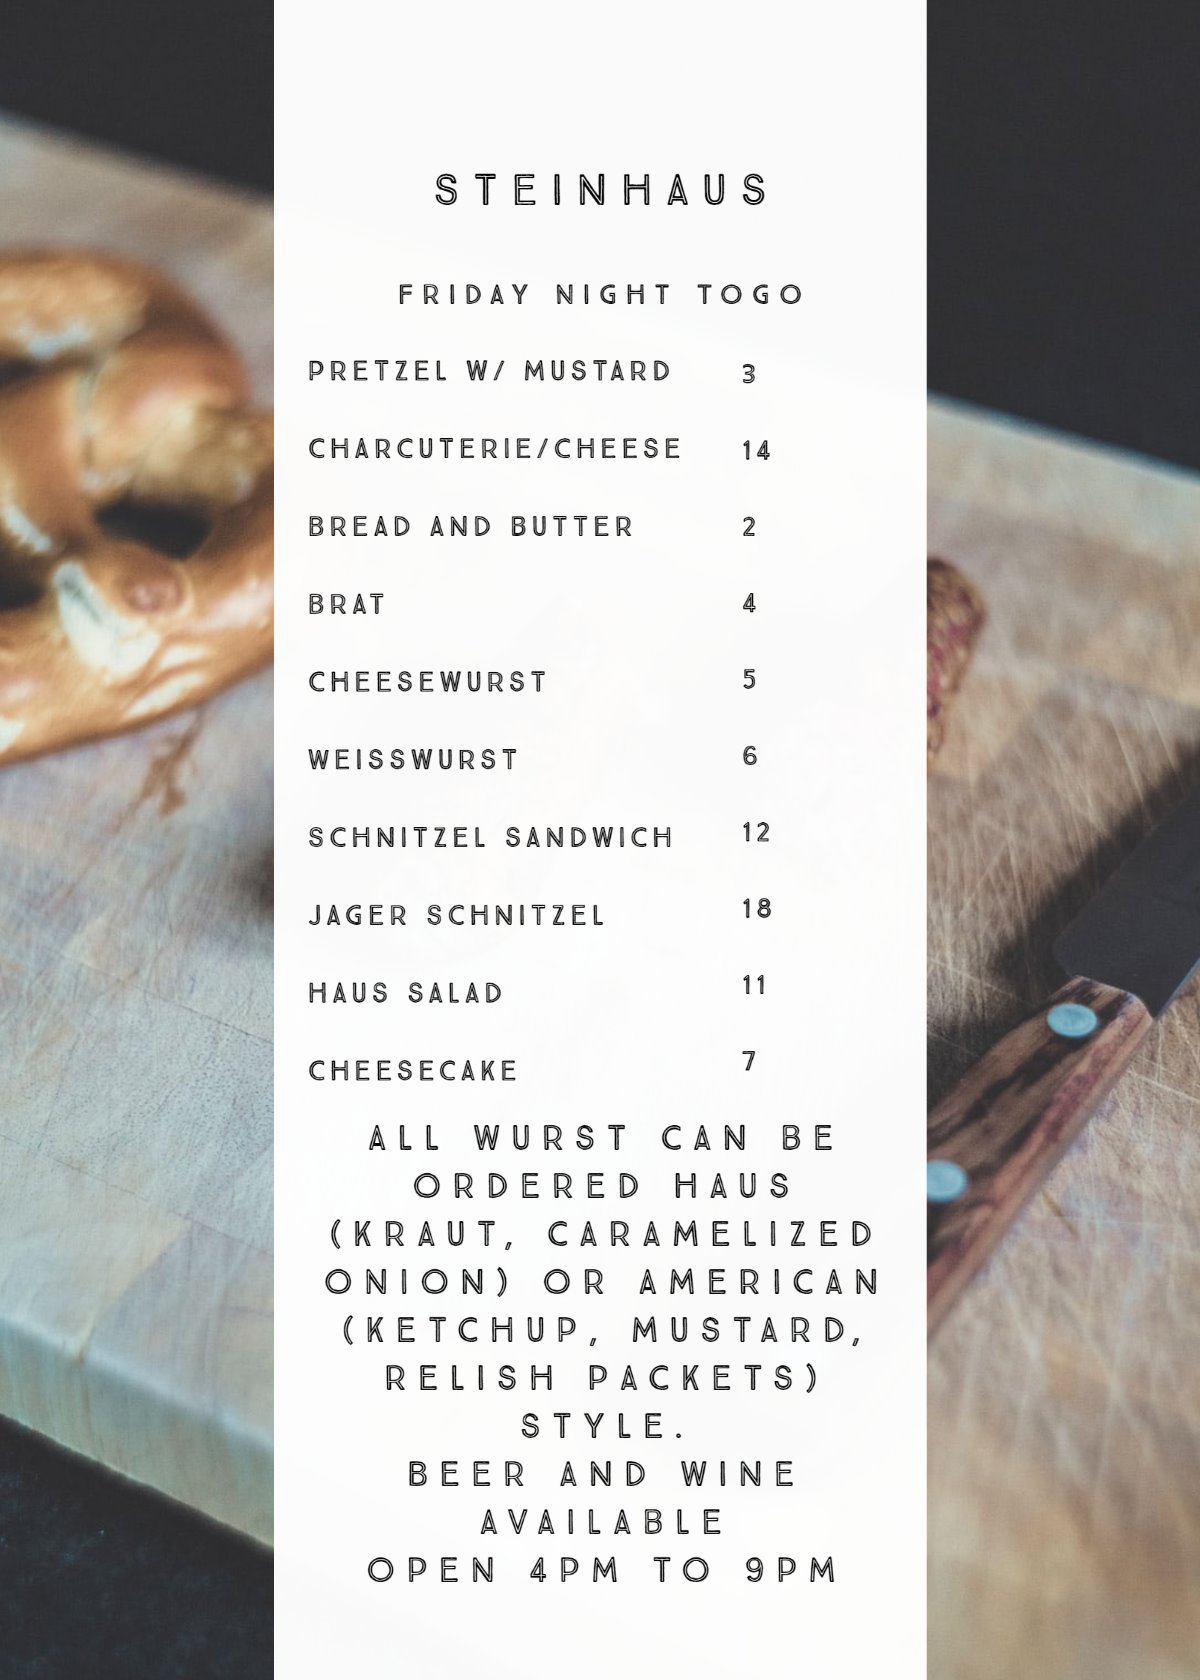 STEINHAUS
FRIDAY NIGHT TOGO
PRETZEL W/ MUSTARD 3
CHARCUTERIE/CHEESE 14
BREAD AND BUTTER 2
BRAT 4
CHEESEWURST 5
WEISSWURST 6
SCHNITZEL SANDWICH 12
JAGER SCHNITZEL 18
HAUS SALAD 11
CHEESECAKE 7
ALL WURST CAN BE
ORDERED HAUS
(KRAUT, CARAMELIZED
ONION) OR AMERICAN
(KETCHUP, MUSTARD,
RELISH PACKETS)
STYLE.
BEER AND WINE
AVAILABLE
OPEN 4PM TO 9PM